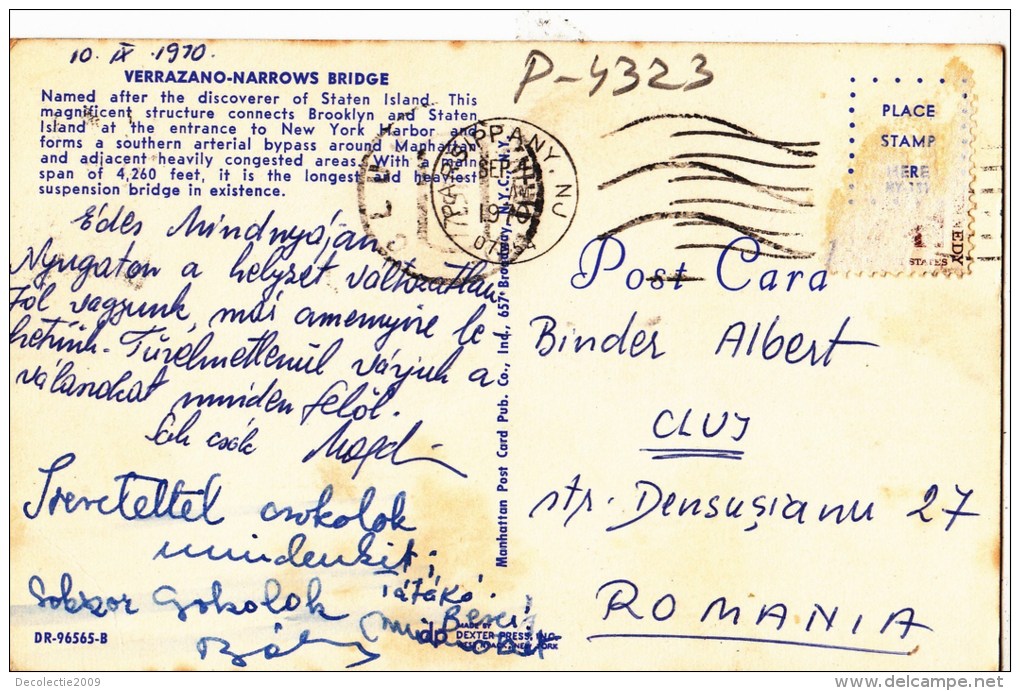 10. IX. 1970.
P-4323
VERRAZANO-NARROWS BRIDGE
Named after the discoverer of Staten Island. This
magnificent structure connects Brooklyn and Staten
Island at the entrance to New York Harbor and
forms a southern arterial bypass around Manhattan
and adjacent heavily congested areas. With a main
span of 4,260 feet, it is the longest and heaviest
suspension bridge in existence.
PARSIPPANY, NJ
SEP
AM
1970
CLUJ
PLACE
STAMP
HERE
STATES
Édes Mindnyáján
Nyugaton a helyzet változatlan.
Jól vagyunk, már amennyire le
hetünk. Türelmetlenül várjuk a
válaszokat minden felől.
Sok csók Magdi
Szeretettel csokolok
mindenkit;
Tátákó.
Sokszor csokolok
Beci
DR-96565-B
Manhattan Post Card Pub. Co., Inc., 657 Broadway, N.Y.C., N.Y.
MADE BY
dp DEXTER PRESS, INC.
WEST NYACK, NEW YORK
Post Card
Binder Albert
CLUJ
str. Densuşianu 27
ROMANIA
Decolectie2009
delcampe.net